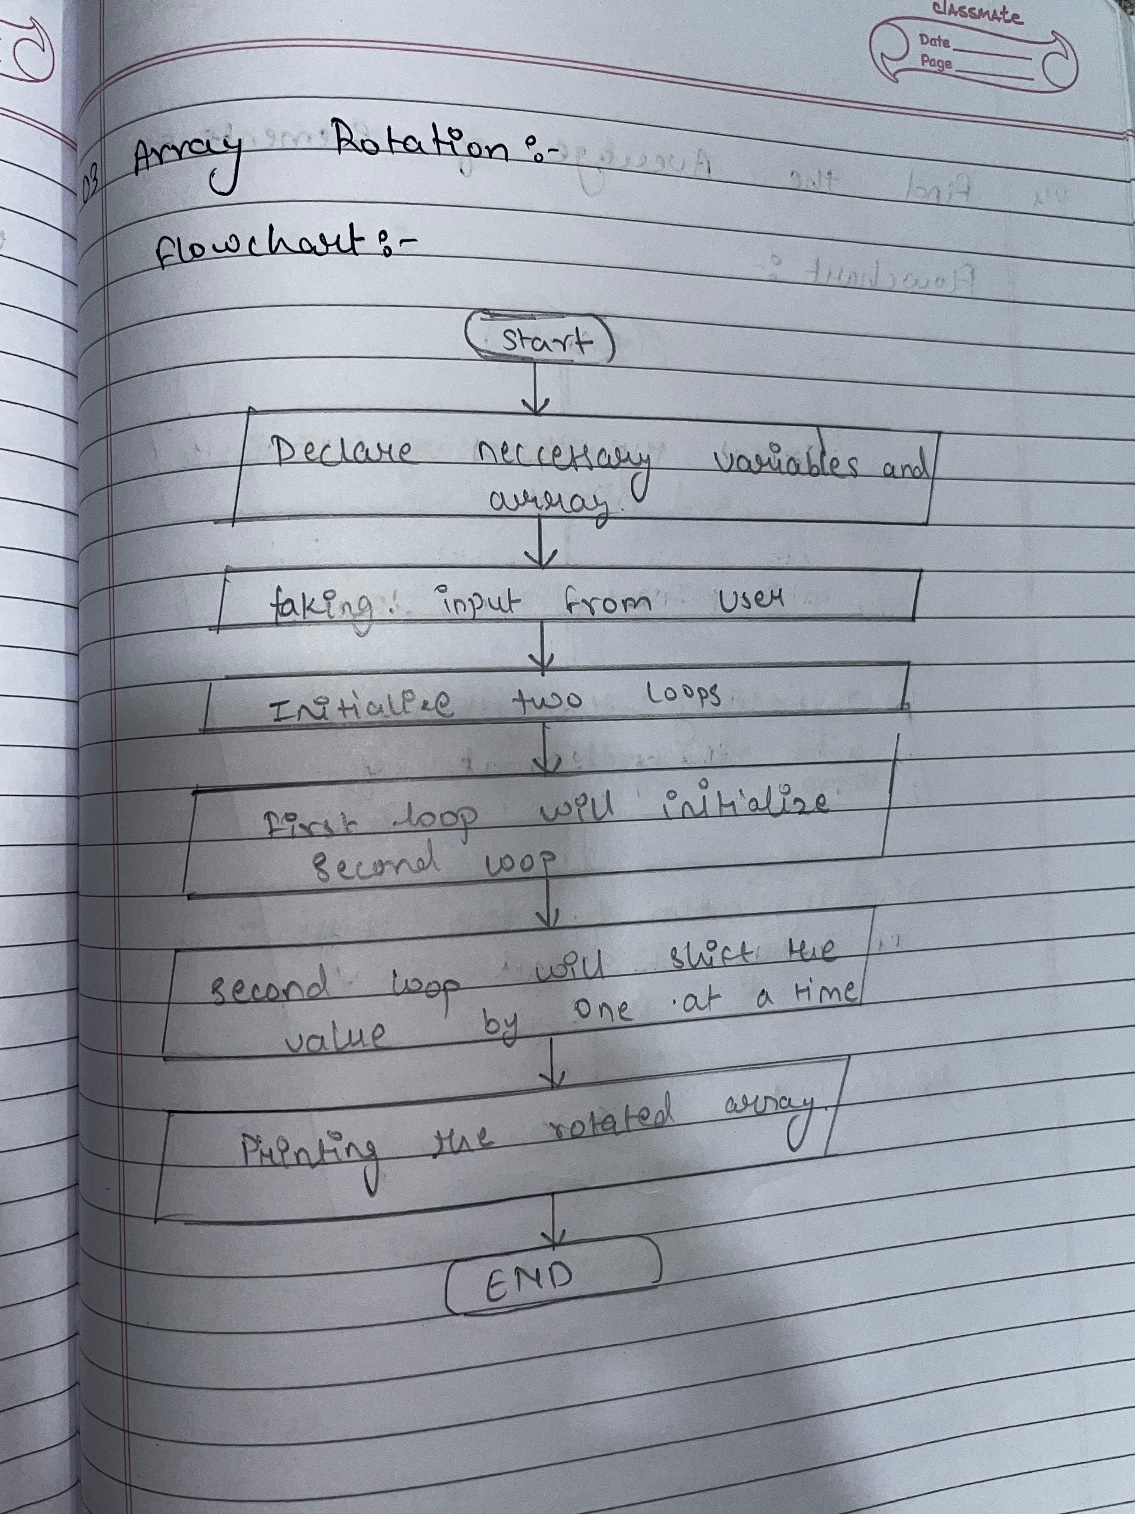 classmate
Date
Page
03 Array Rotation :-
Flowchart :-
Start
Declare neccessary variables and
array.
taking input from user
Initialize two loops.
First loop will initialize
second loop
second loop will shift the
value by one at a time
Printing the rotated array.
END